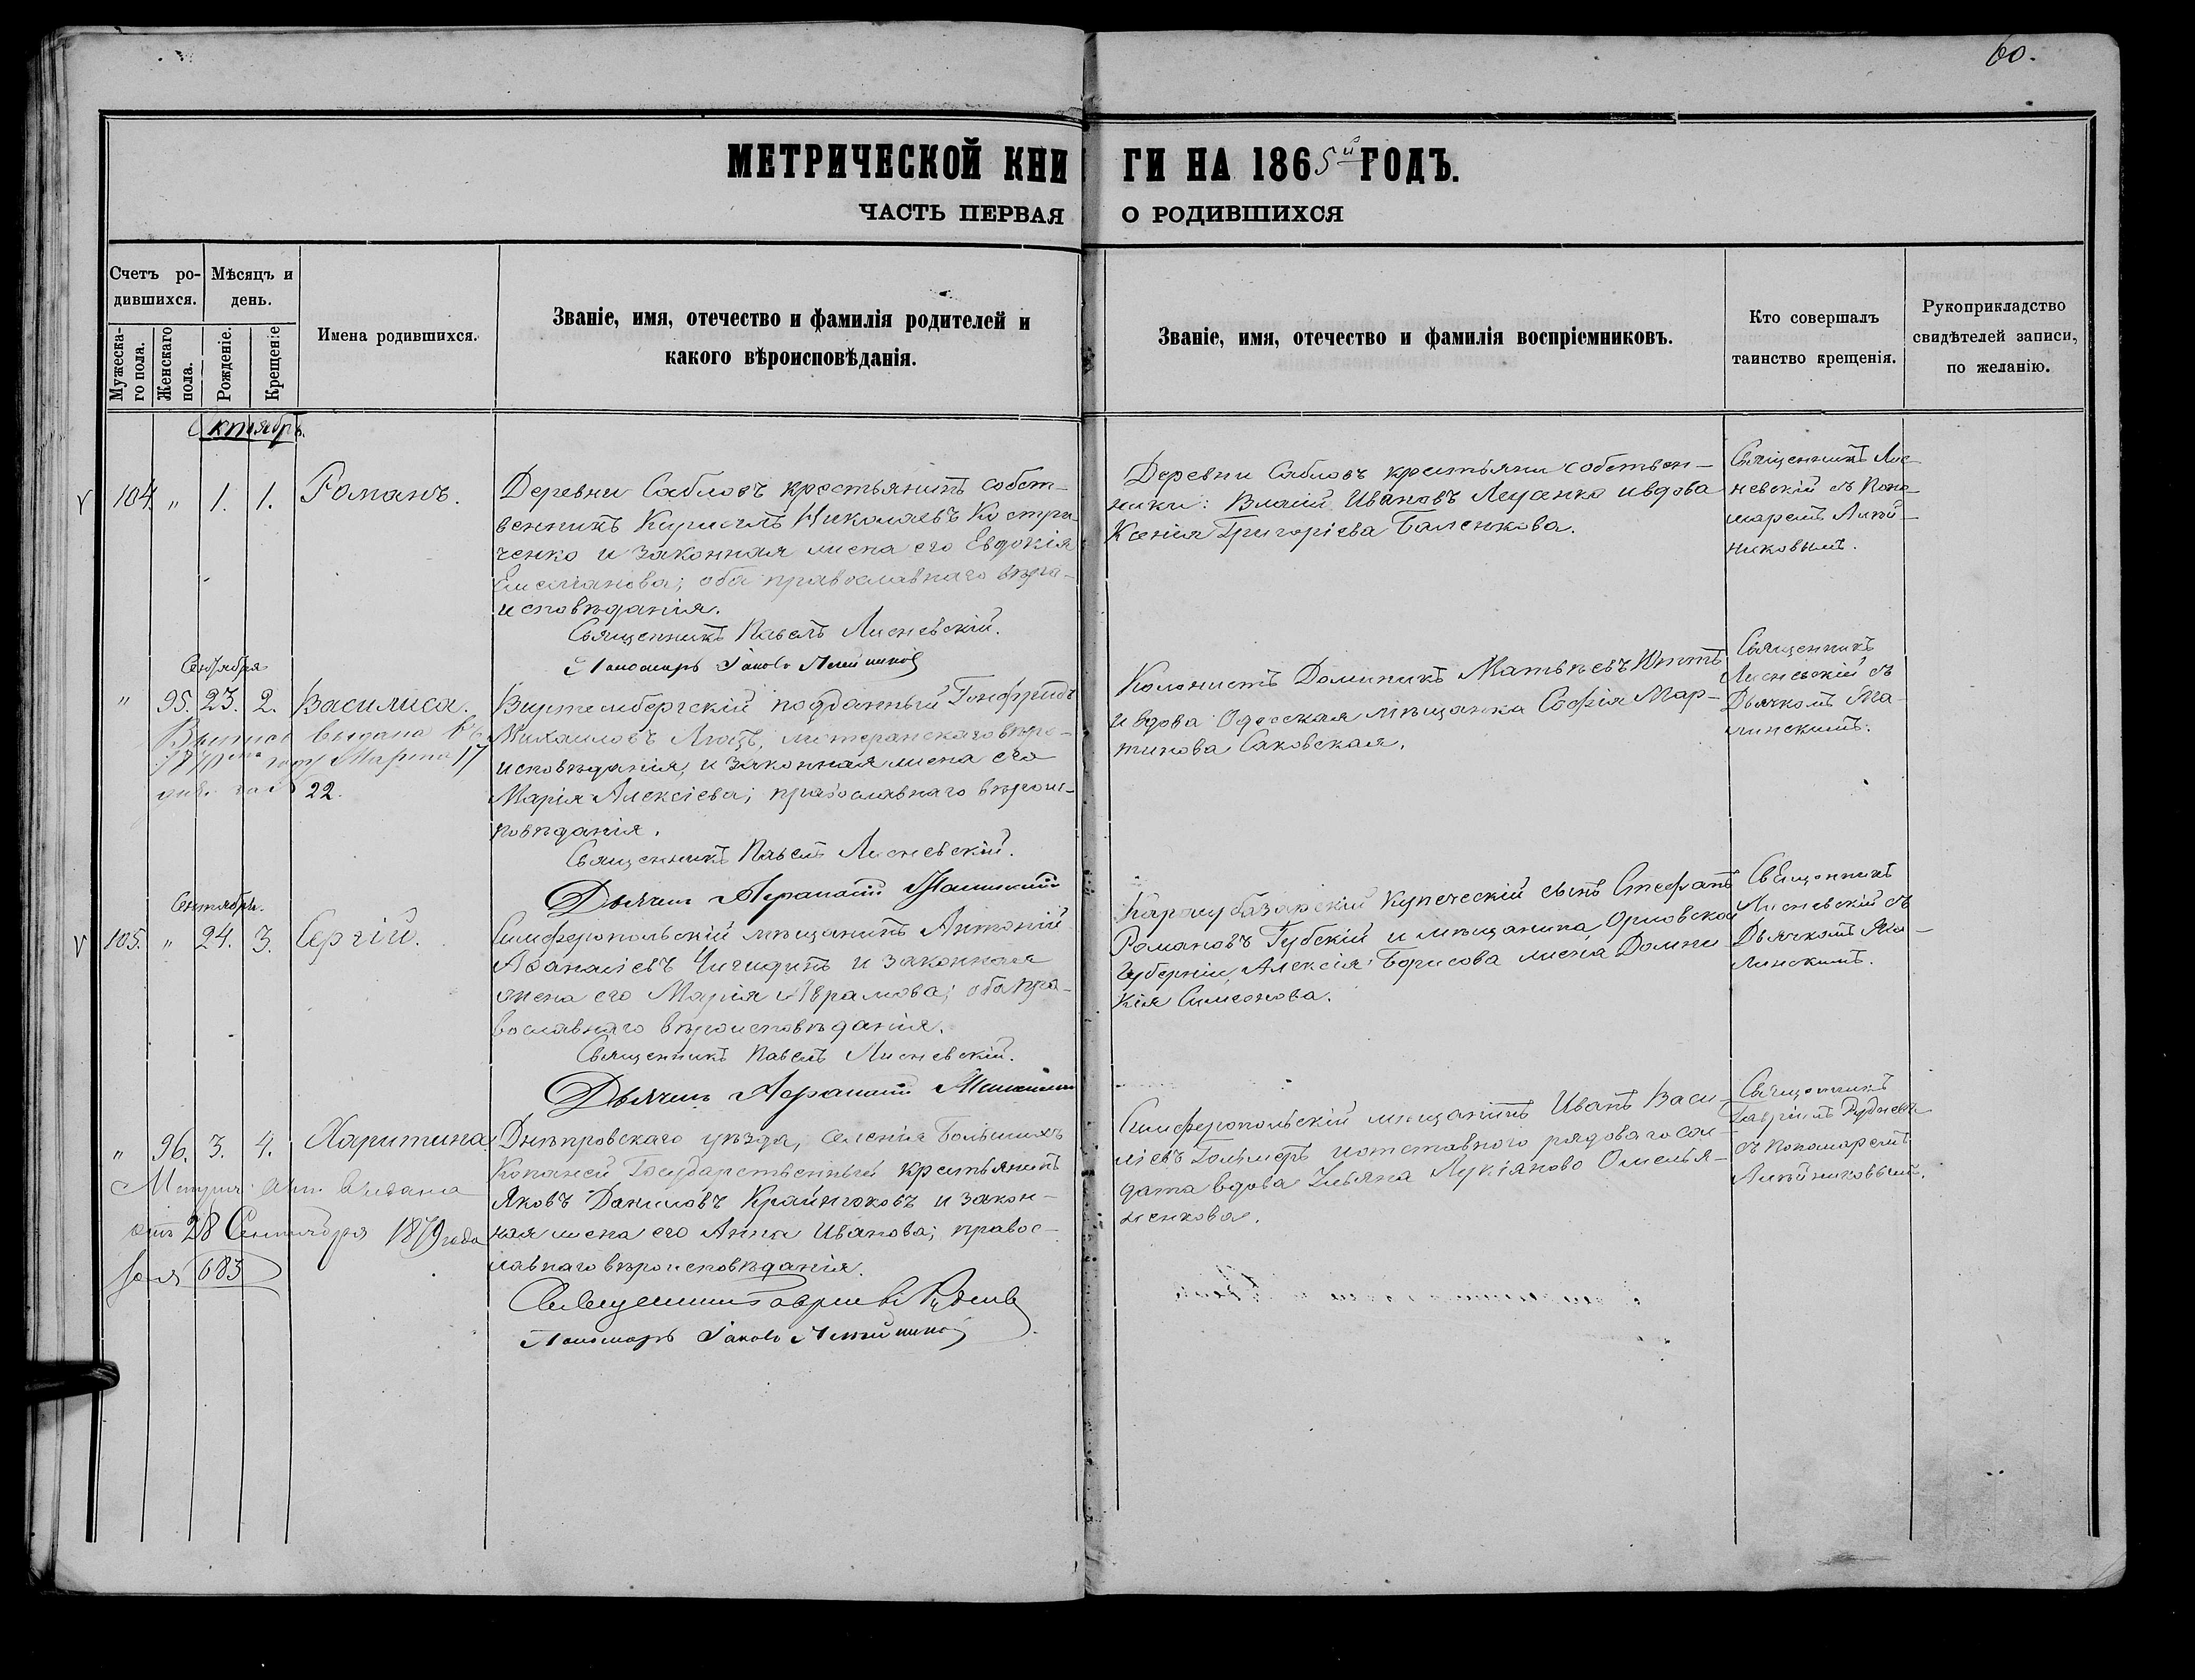 60.
МЕТРИЧЕСКОЙ КНИГИ НА 1865й ГОДЪ.
ЧАСТЬ ПЕРВАЯ О РОДИВШИХСЯ
Счетъ ро-
дившихся.
Мужеска-
го пола.
Женскаго
пола.
Мѣсяцъ и
день.
Рожденіе.
Крещеніе
Имена родившихся.
Званіе, имя, отечество и фамилія родителей и
какого вѣроисповѣданія.
Званіе, имя, отечество и фамилія воспріемниковъ.
Кто совершалъ
таинство крещенія.
Рукоприкладство
свидѣтелей записи,
по желанію.
Октябрь.
104. " 1. 1. Романъ.
Деревни Сабловъ крестьянинъ собст-
венникъ Кириллъ Николаевъ Костри-
ченко и законная жена его Евдокія
Емеліанова; оба православнаго вѣро-
исповѣданія.
Священникъ Павелъ Лисневскій.
Пономарь Іаковъ
Деревни Сабловъ крестьяни собствен-
ники: Власій Ивановъ и вдова
Ксенія Григоріева Баленкова.
Священникъ Лис-
невскій съ Поно-
маремъ
никовымъ.
Сентября
" 95. 23. 2. Василиса.
Виртембергскій подданный Готфридъ
Михаиловъ лютеранскаго вѣро-
исповѣданія, и законная жена его
Марія Алексіева; православнаго вѣроис-
повѣданія.
Священникъ Павелъ Лисневскій.
Дьячекъ
выдана
году Марта 17
22.
Колонистъ Доминикъ Матвѣевъ
и вдова Одесская мѣщанка Софія Мар-
тинова Саковская.
Священникъ
Лисневскій съ
Дьячкомъ
линскимъ.
Сентябрь.
105. " 24. 3. Сергій.
Симферопольскій мѣщанинъ Антоній
Аѳанасіевъ Чигидинъ и законная
жена его Марія Аврамова; оба пра-
вославнаго вѣроисповѣданія.
Священникъ Павелъ Лисневскій.
Дьячекъ
Карасубазарскій Купеческій сынъ Стефанъ
Романовъ Губскій и мѣщанина Орловской
Губерніи Алексія Борисова жена Домни-
кія Симеонова.
Священникъ
Лисневскій съ
Дьячкомъ
линскимъ.
" 96. 3. 4. Харитина.
Днѣпровскаго уѣзда, селенія Большихъ
Копаней Государственный крестьянинъ
Яковъ Даниловъ Крайнюковъ и закон-
ная жена его Анна Иванова; правос-
лавнаго вѣроисповѣданія.
Священникъ Гавріилъ Рудневъ
Пономарь Іаковъ
выдана
28 Сентября 1879 года
683
Симферопольскій мѣщанинъ Иванъ Васи-
ліевъ и отставного рядоваго сол-
дата вдова Ульяна Лукіяново Омелья-
ненкова.
Священникъ
Гавріилъ Рудневъ
съ Пономаремъ